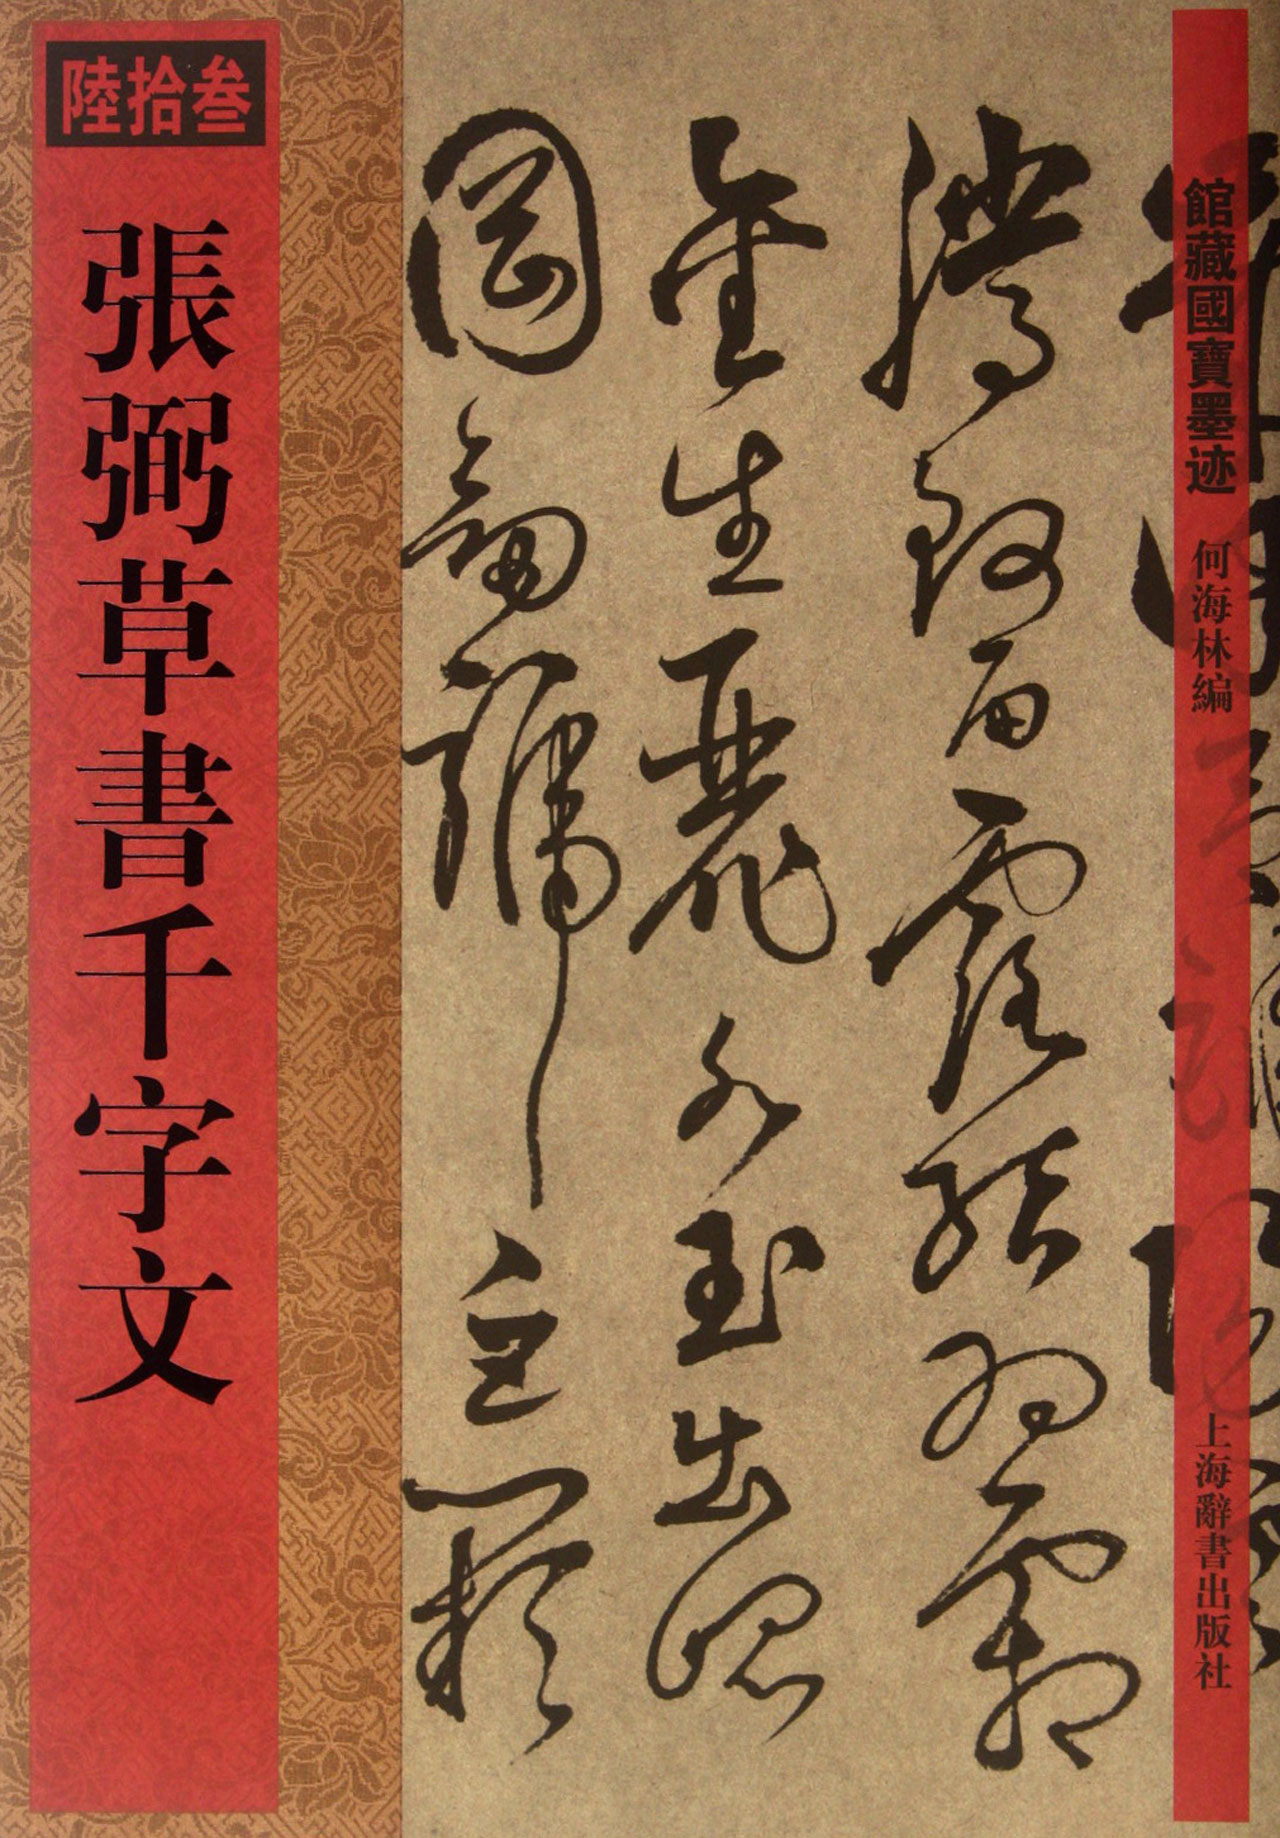 陸拾叁
張弼草書千字文
館藏國寶墨迹
何海林編
上海辭書出版社
騰致雨露結為霜
金生麗水玉出崑
岡劍號巨闕